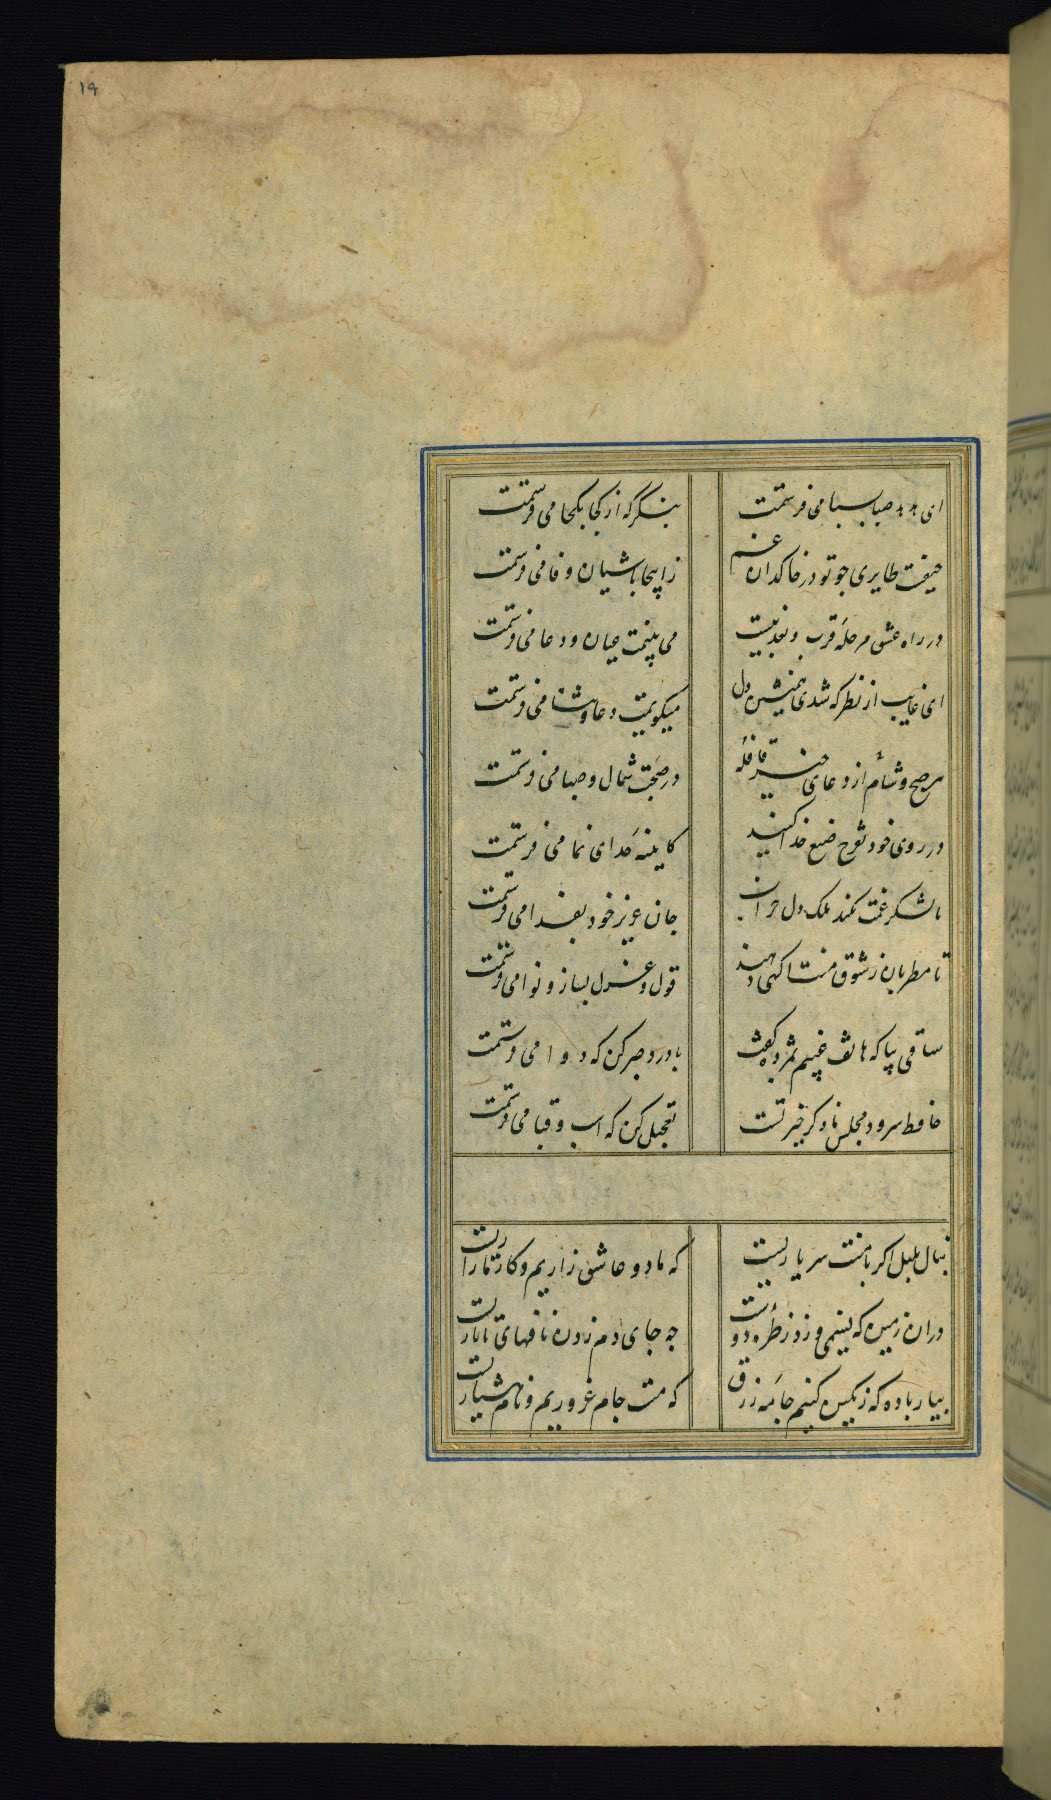 ۱۹
ای هدهد صبا بسبا می فرستمت بنگر که از کجا بکجا می فرستمت
حیفست طایری جو تو در خاکدان غم زاینجا باشیان وفا می فرستمت
در راه عشق مرحله قرب و بعد نیست می بینمت عیان و دعا می فرستمت
ای غایب از نظر که شدی همنشین دل میکویمت دعا و ثنا می فرستمت
هر صبح و شام از دعای خیر قافله در صحبت شمال و صبا می فرستمت
در روی خود تفرح صنع خدا کنید کاینه خدای نما می فرستمت
تا لشکر غمت نکند ملک دل خراب جان عزیز خود بفدا می فرستمت
تا مطربان ز شوق منت اکهی دهند قول و غزل بساز و نوا می فرستمت
ساقی بیا که هاتف غیبم بمژده گفت با درد صبر کن که دوا می فرستمت
حافظ سرود مجلس ما ذکر خیر تست تعجیل کن که اسب و قبا می فرستمت
بنال بلبل اکر با منت سر یاریست که ما دو عاشق زاریم و کار ما زاریست
دران زمین که نسیمی وزد ز طره دوست جه جای دم زدن نافهای تاتاریست
بیار باده که رنگین کنیم جامه زرق که مست جام غروریم و نام هشیاریست